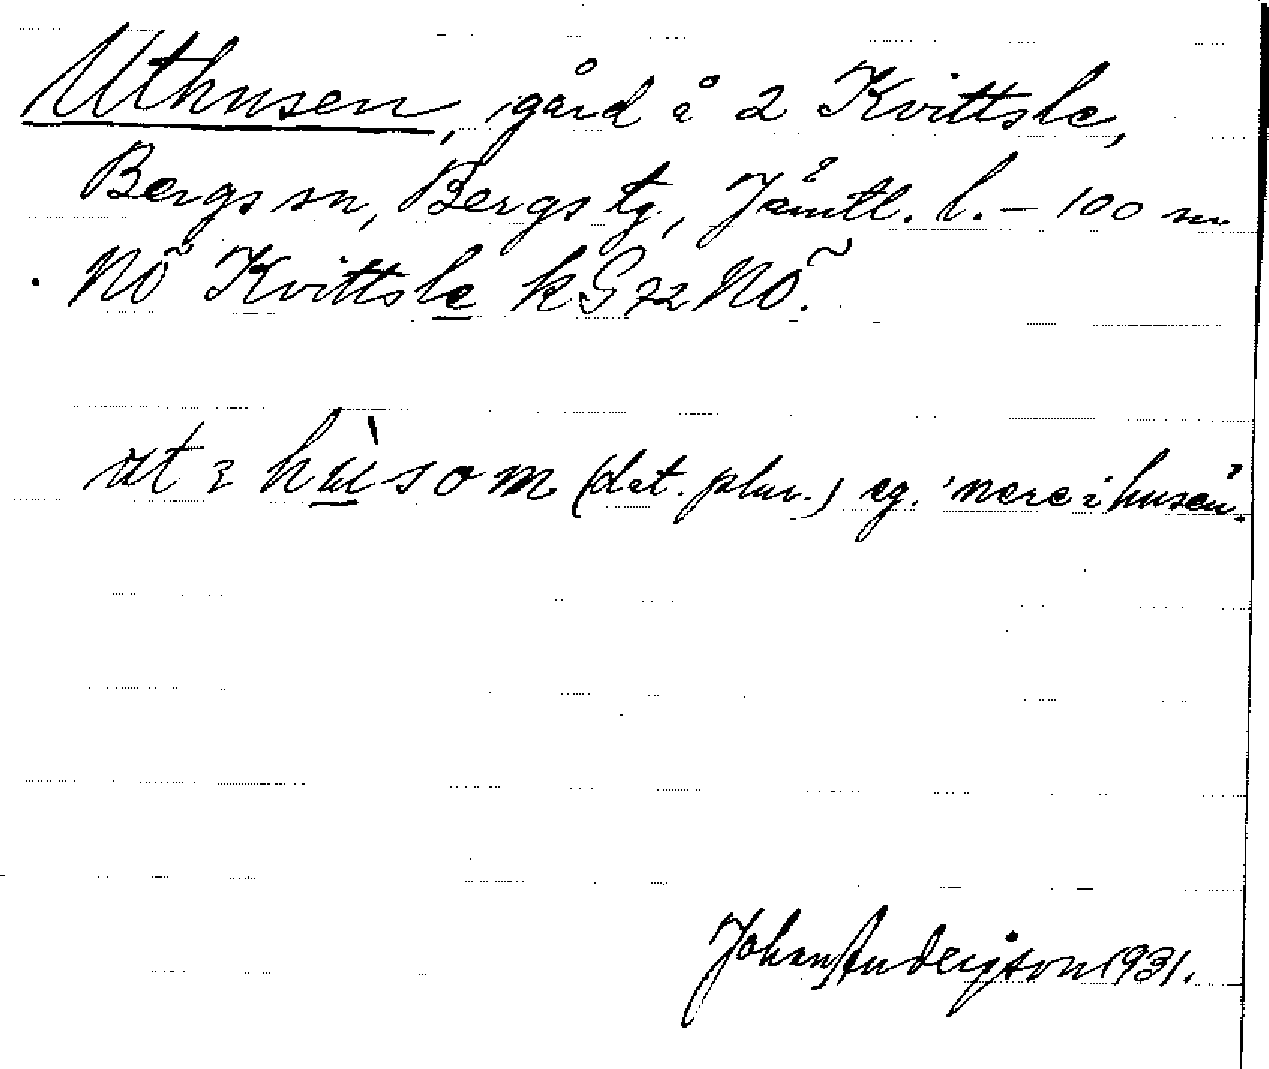 Uthusen, gård å 2 Kvittsle,
Bergs sn, Bergs tg, Jämtl. l. – 100 m
NÖ Kvittsle k G 72 NÖ.
ut i hùsom (dat. plur.) eg. 'nere i husen'.
Johan Anderson 1931.